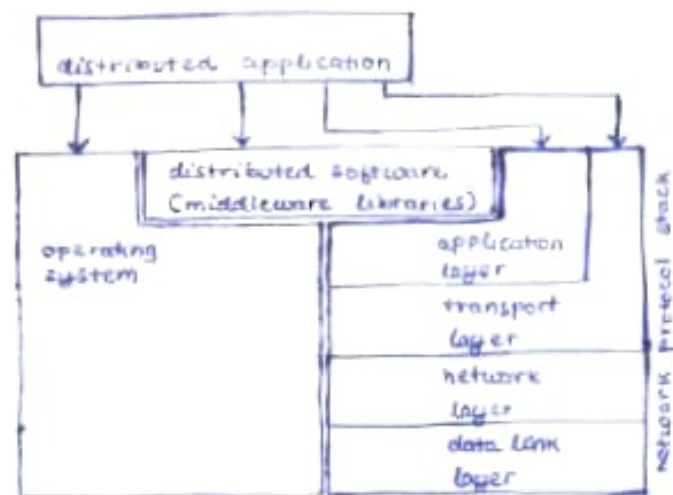 distributed application
distributed software
(middleware libraries)
operating
system
application
layer
transport
layer
network
layer
data link
layer
Network protocol stack